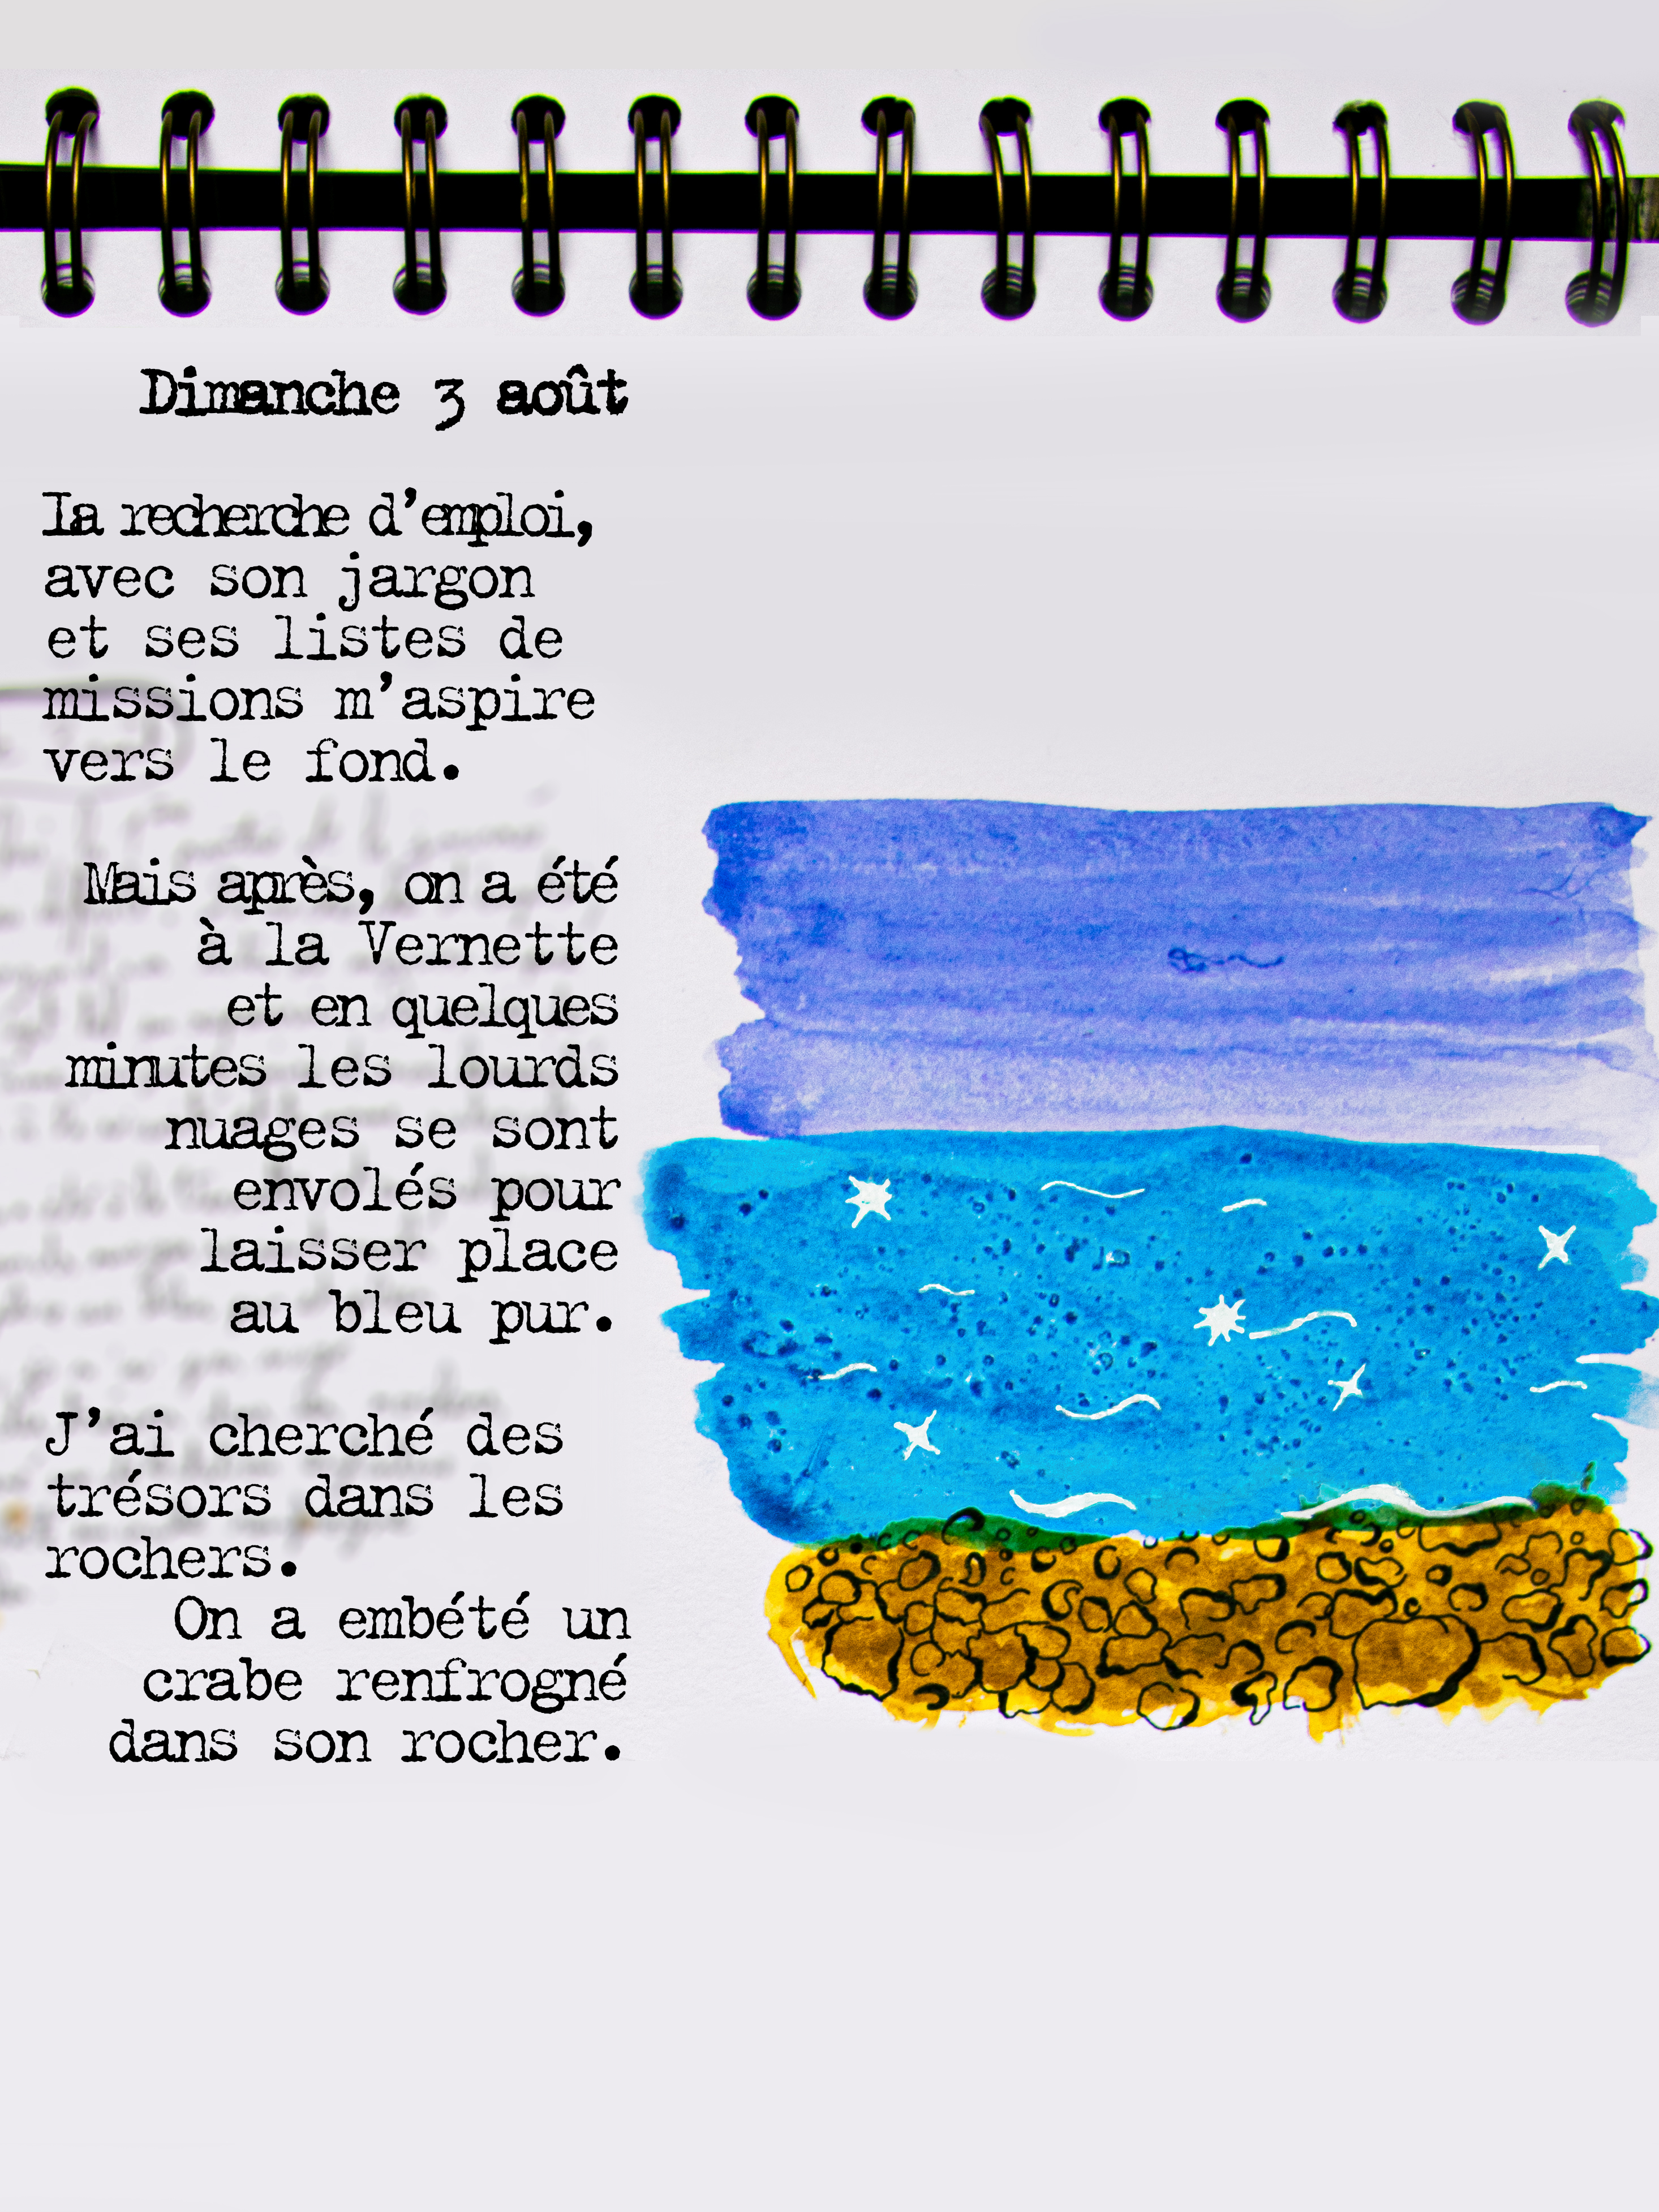 Dimanche 3 août
La recherche d'emploi,
avec son jargon
et ses listes de
missions m'aspire
vers le fond.
Mais après, on a été
à la Vernette
et en quelques
minutes les lourds
nuages se sont
envolés pour
laisser place
au bleu pur.
J'ai cherché des
trésors dans les
rochers.
On a embété un
crabe renfrogné
dans son rocher.